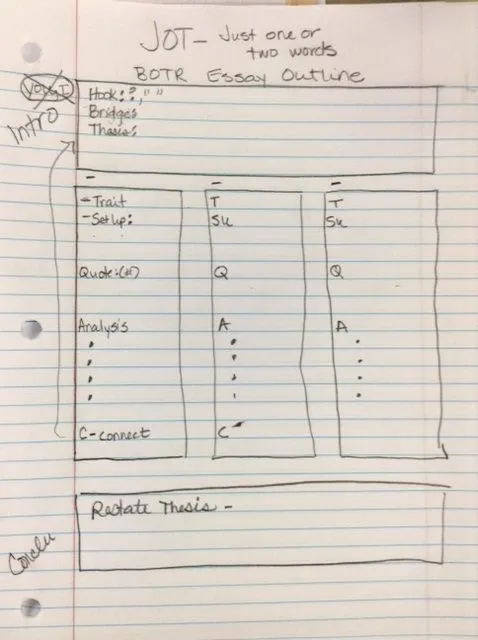 JOT - Just one or
two words
BOTR Essay Outline
Intro
Hook: ?, " "
Bridge:
Thesis:
- Trait
- Set up:
Quote: (#)
Analysis
C - connect
T
Su
Q
A
C
T
Su
Q
A
Restate Thesis -
Conclu